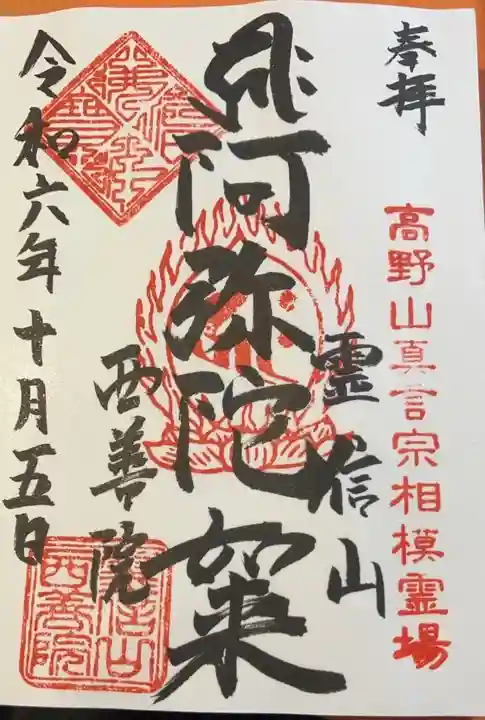 奉拝
高野山真言宗相模霊場
霊信山
阿弥陀
西善院
令和六年十月五日
霊信山
西善院